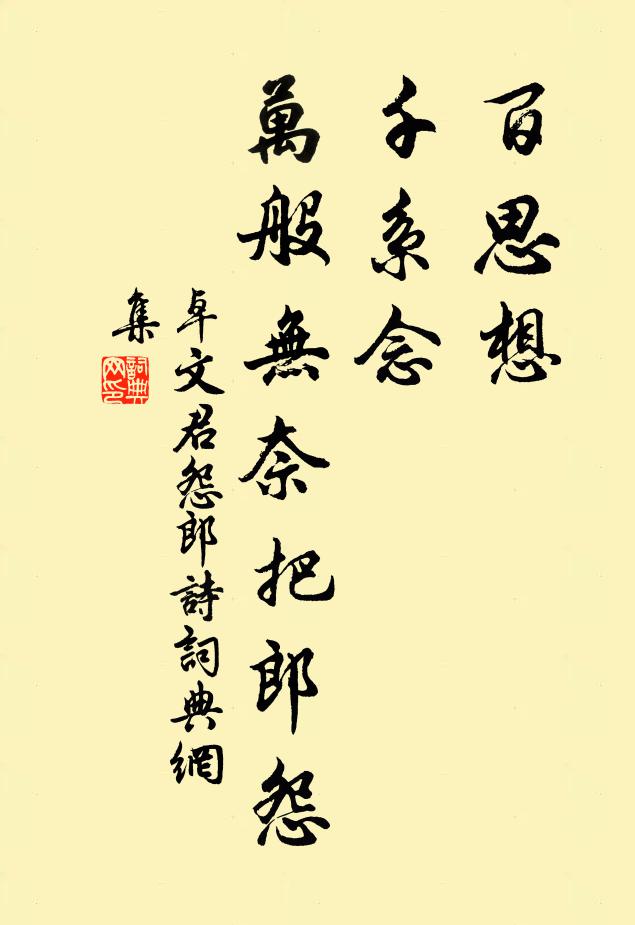 百思想
千系念
萬般無奈把郎怨
卓文君怨郎詩詞典網
集
詞典網印